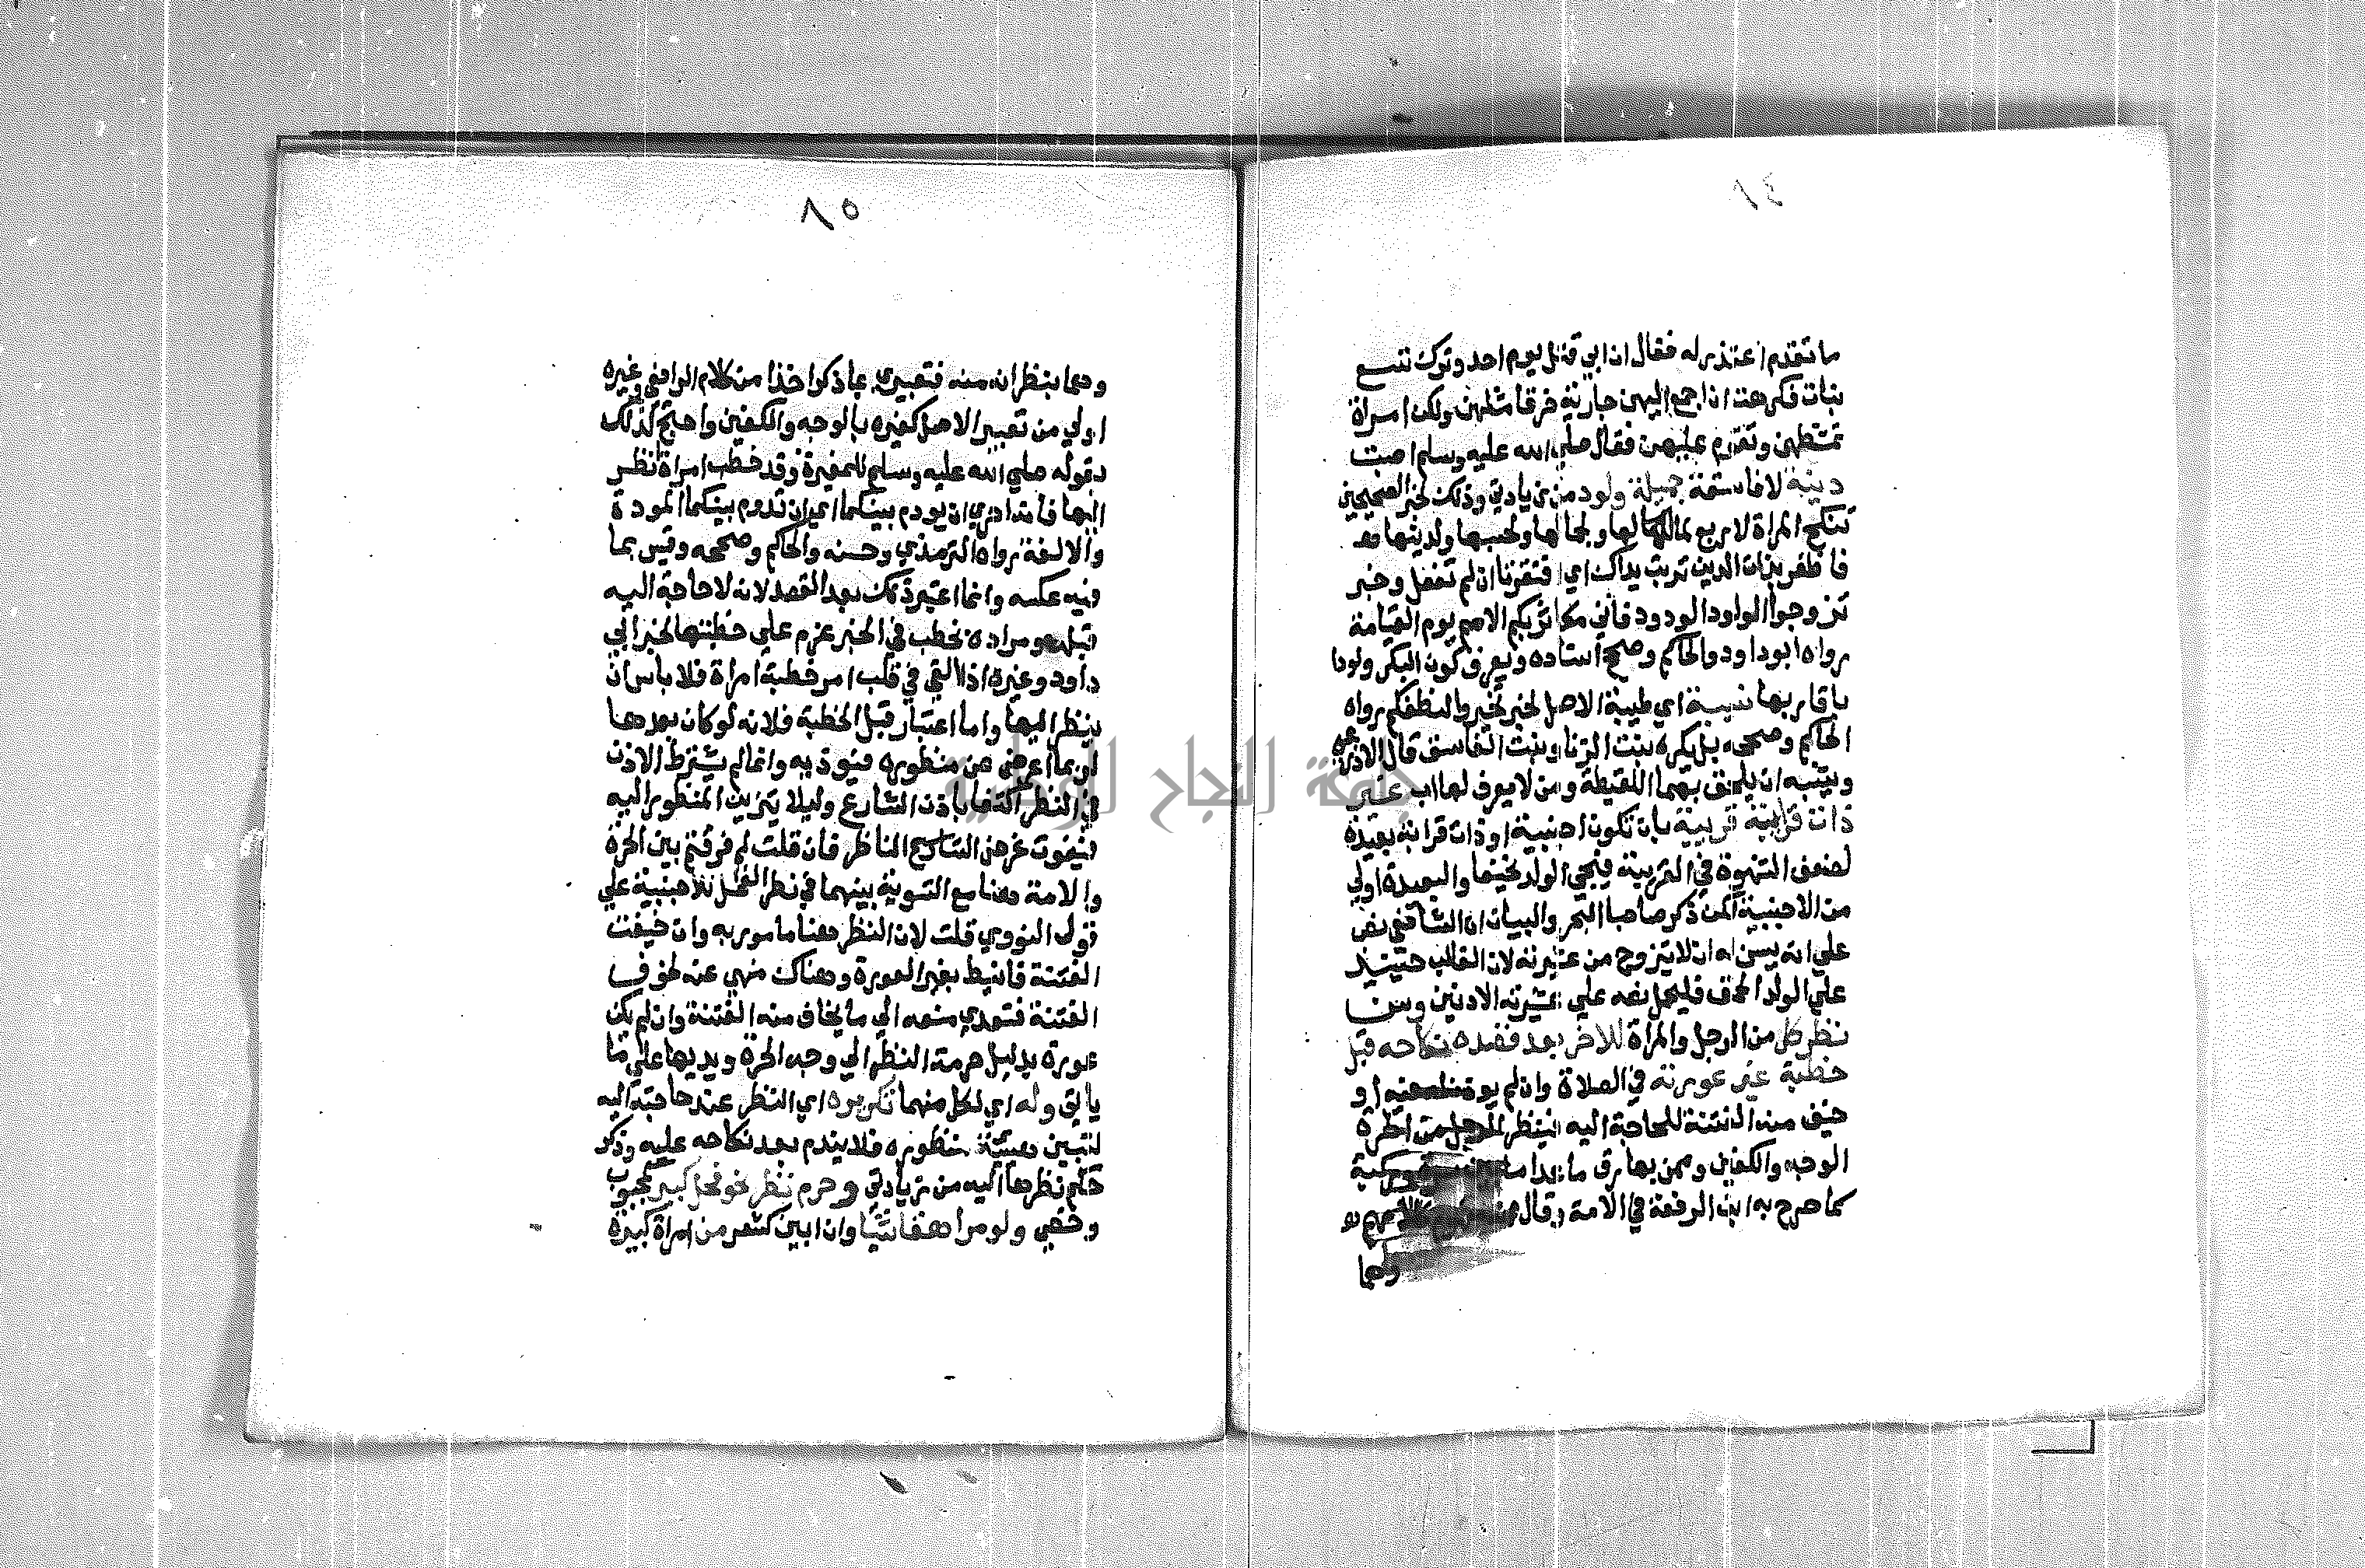 ١٤
ما تقدم اعتذر له فقال ان ابي قتل يوم احد وترك تسع
بنات فكرهت ان اجمع اليهن جارية خرقا مثلهن ولكن امراة
تمشطهن وتقوم عليهن فقال صلي الله عليه وسلم اصبت
دينة لا فاسقة جميلة ولود من زيادتي وذلك لخبر الصحيحين
تنكح المراة لاربع لمالها ولجمالها ولحسبها ولدينها
فاظفر بذات الدين تربت يداك اي افتقرتا ان لم تفعل وخبر
تزوجوا الولود الودود فاني مكاثر بكم الامم يوم القيامة
رواه ابو داود والحاكم وصحح اسناده ويعرف كون البكر ولودا
باقاربها نسيبة اي طيبة الاصل لخبر تخيروا لنطفكم رواه
الحاكم وصححه بل يكره بنت الزنا وبنت الفاسق قال الاذرعي
ويشبه ان يلحق بهما اللقيطة ومن لا يعرف لها اب غير
ذات قرابة قريبة بان تكون اجنبية او ذات قرابة بعيدة
لضعف الشهوة في القريبة فيجي الولد نحيفا والبعيدة اولي
من الاجنبية لكن ذكر صاحبا البحر والبيان ان الشافعي نص
علي انه يسن له ان لا يتزوج من عشيرته لان الغالب حينيذ
علي الولد الحمق فليحمل نصه علي عشيرته الادنين وسن
نظر كل من الرجل والمراة للاخر بعد قصده نكاحه قبل
خطبة غير عورته في الصلاة وان لم يوذن له فيه او
خيف منه الفتنة للحاجة اليه فينظر الرجل من الحرة
الوجه والكفين وممن بها رق ما عدا ما بين سرة وركبة
كما صرح به ابن الرفعة في الامة وقال
وهما
٨٥
وهما ينظرانه منه فتعبيري بما ذكر اخذا من كلام الرافعي وغيره
اولي من تعبير الاصل كغيره بالوجه والكفين واحتج لذلك
بقوله صلي الله عليه وسلم للمغيرة وقد خطب امراة انظر
اليها فانه احري ان يودم بينكما اي ان تدوم بينكما المودة
والالفة رواه الترمذي وحسنه والحاكم وصححه وقيس بما
فيه عكسه وانما اعتبر ذلك بعد القصد لانه لا حاجة اليه
قبله ومراده بخطب في الخبر عزم علي خطبتها لخبر ابي
داود وغيره اذا القي في قلب امر خطبة امراة فلا باس ان
ينظر اليها واما اعتباره قبل الخطبة فلانه لو كان بعدها
لربما اعرض عن منظوره فيوذيه وانما لم يشترط الاذن
في النظر اكتفا باذن الشارع وليلا يتزين المنظور اليه
فيفوت غرض الشارع الناظر فان قلت لم فرقتم بين الحرة
والامة هنا مع التسوية بينهما في نظر الفحل للاجنبية علي
قول النووي قلت لان النظر هنا مامور به وان خيفت
الفتنة فانيط بغير العورة وهناك منهي عنه لخوف
الفتنة فتعدي منعه الي ما يخاف منه الفتنة وان لم يكن
عورة بدليل حرمة النظر الي وجه الحرة ويديها علي ما
ياتي وله اي لكل منهما تكريره اي النظر عند حاجته اليه
لتتبين هيئة منظوره فلا يندم بعد نكاحه عليه وذكر
حكم نظرها اليه من زيادتي وحرم نظر نحو فحل كبير كمجبوب
وخصي ولو مراهقا شيا وان ابين كشعر من امراة كبيرة
جامعة النجاح الوطنية